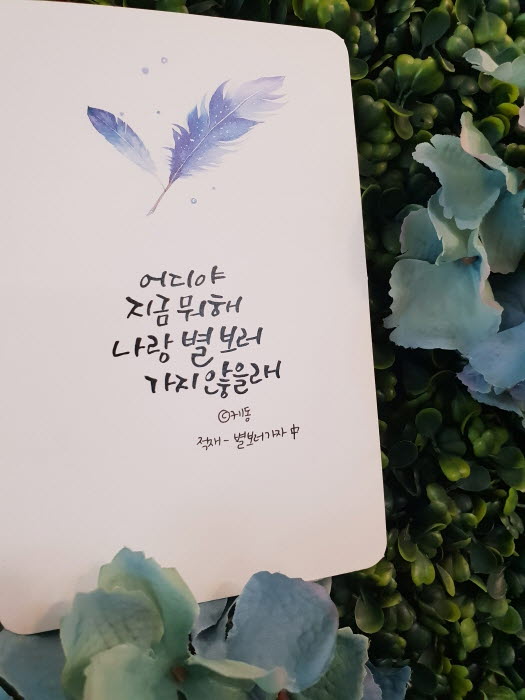 어디야
지금 뭐해
나랑 별 보러
가지 않을래
ⓒ제동
적재 - 별보러가자 中